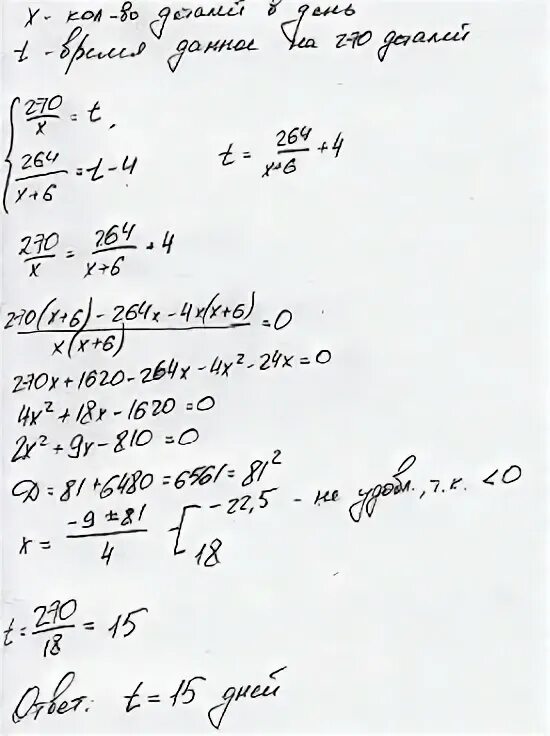 x - кол-во деталей в день
t - время данное на 270 деталей
{ 270/x = t,
264/(x+6) = t - 4
t = 264/(x+6) + 4
270/x = 264/(x+6) + 4
(270(x+6) - 264x - 4x(x+6))/(x(x+6)) = 0
270x + 1620 - 264x - 4x² - 24x = 0
4x² + 18x - 1620 = 0
2x² + 9x - 810 = 0
D = 81 + 6480 = 6561 = 81²
x = (-9 ± 81)/4 [ -22,5 - не удовл., т.к. < 0
18
t = 270/18 = 15
Ответ: t = 15 дней